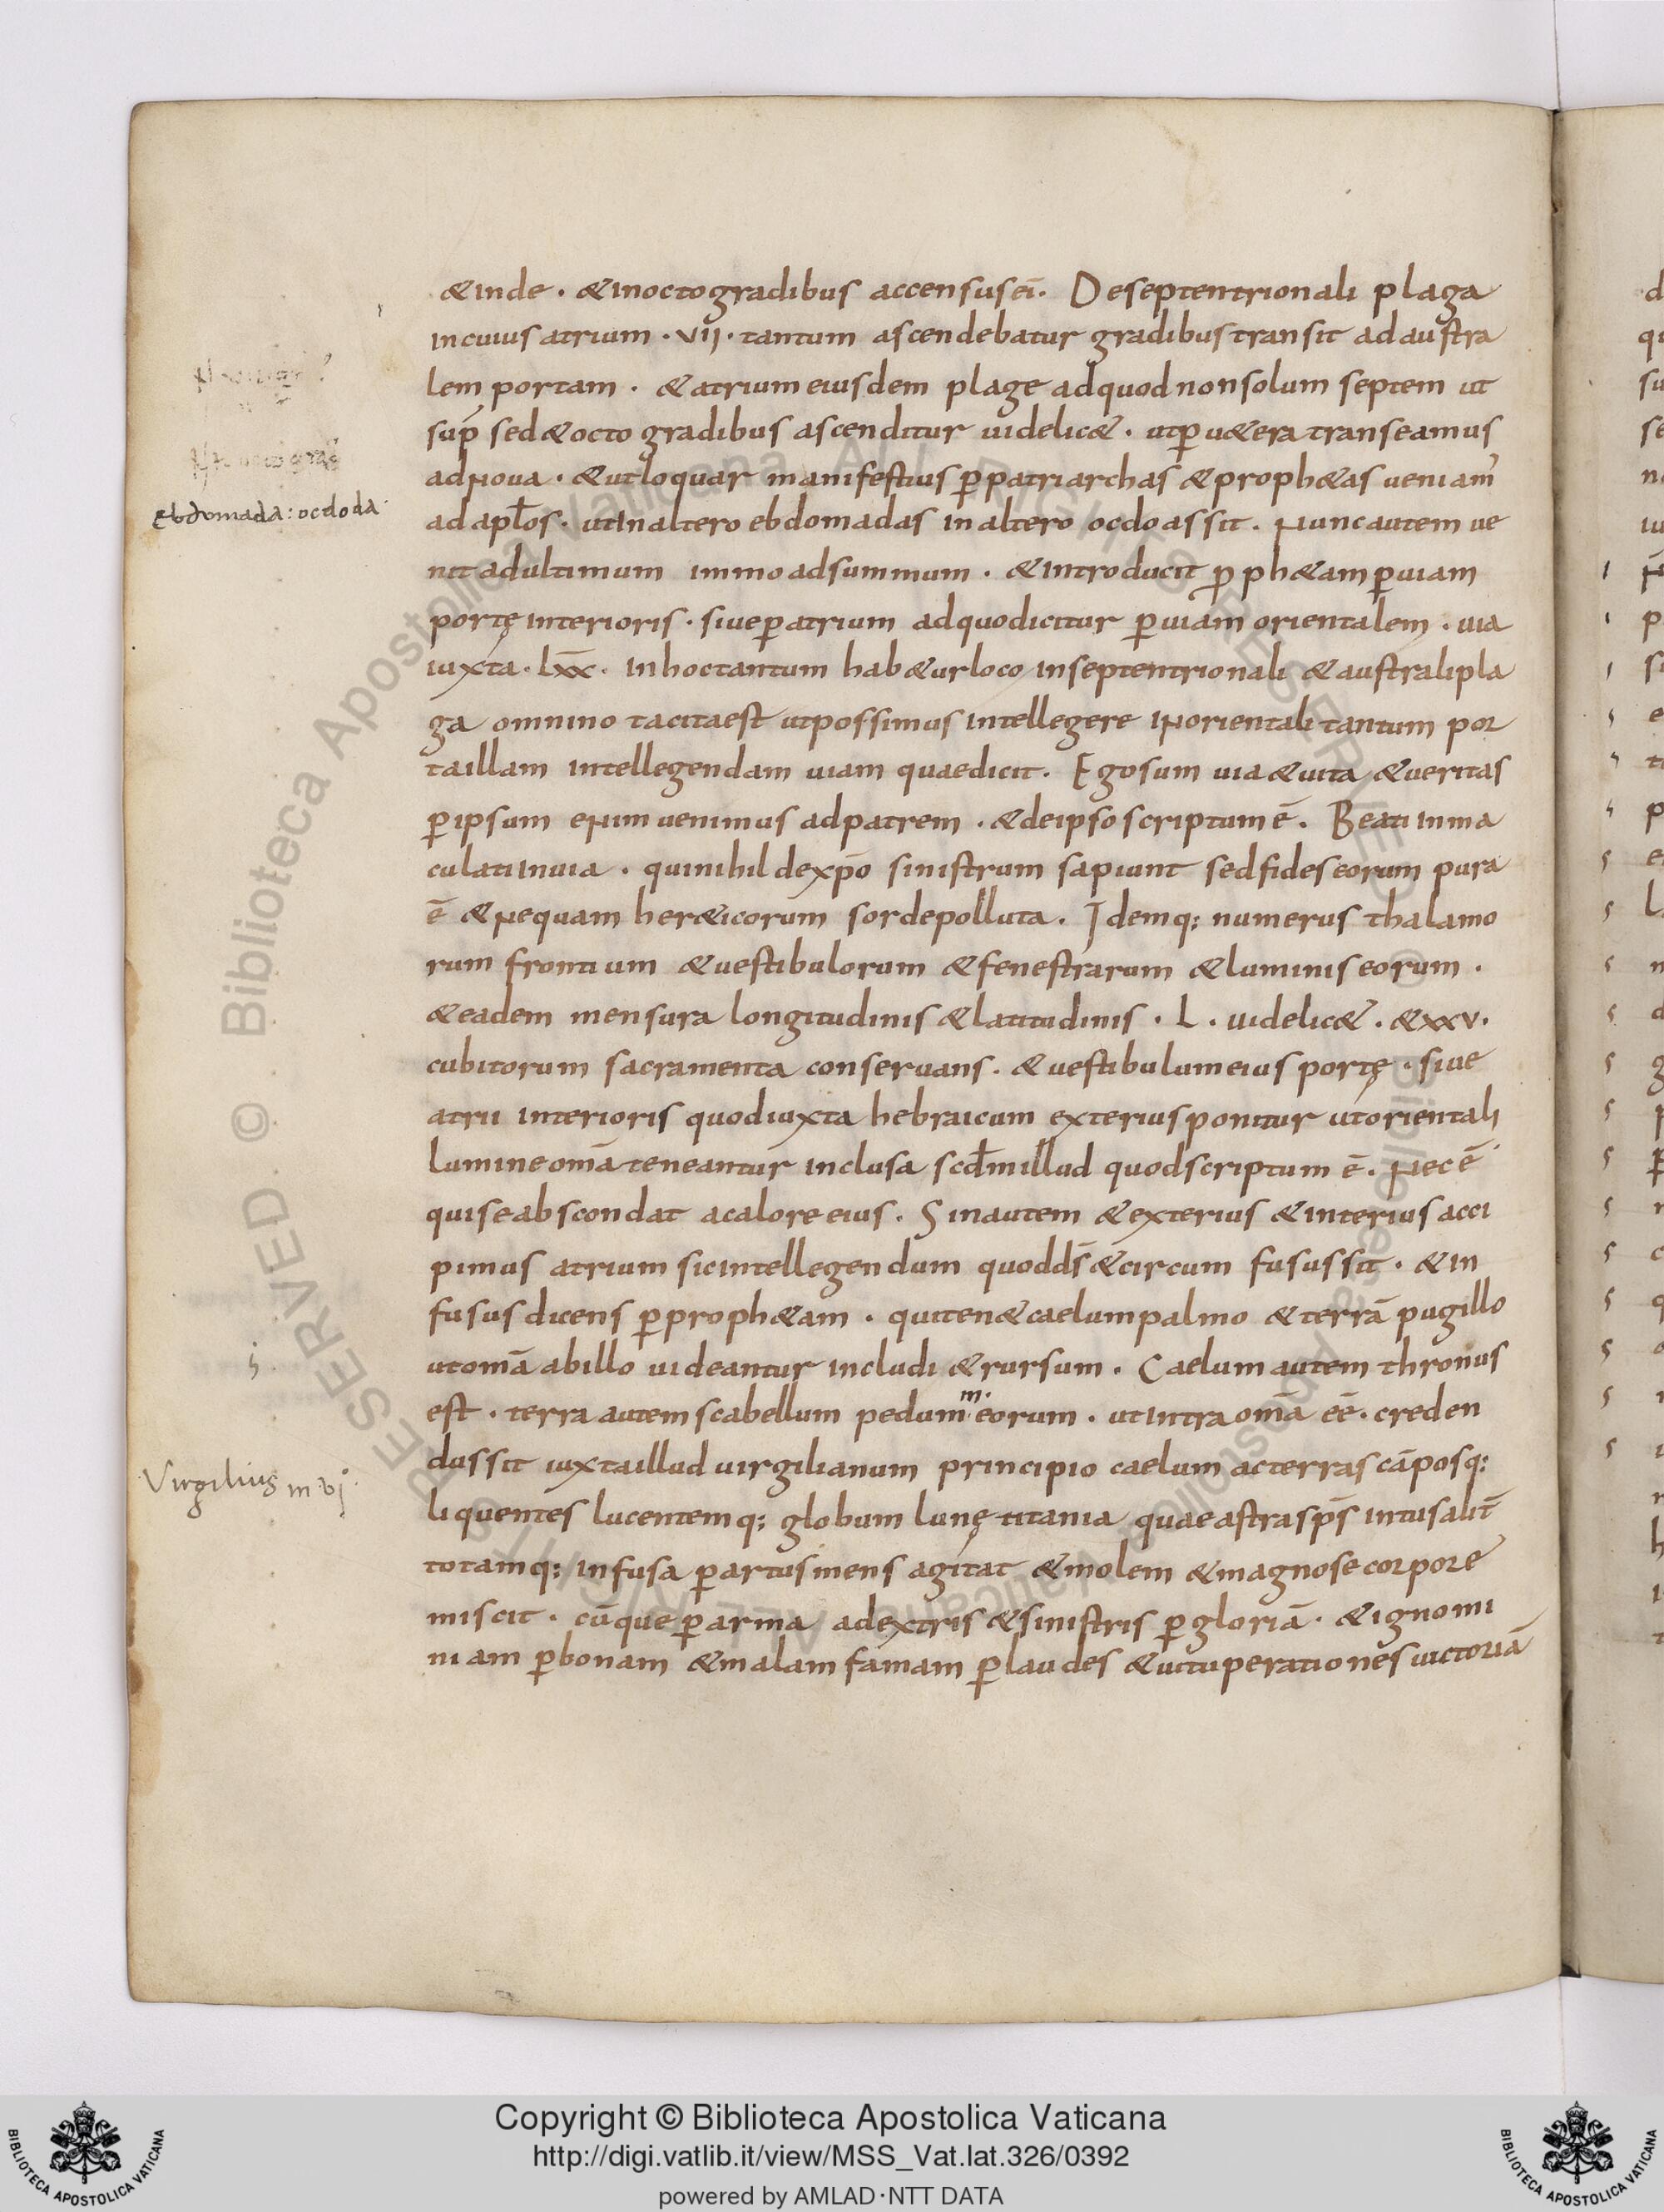 & inde · & inoctogradibus accensusei̅· Deseptentrionali plaga
incuius atrium · vij · tantum ascendebatur gradibus transit adaustra
lem portam · & atrium eiusdem plage adquod nonsolum septem ut
sup̅ sed & octo gradibus ascenditur uidelic& · utp̲ u&era transeamus
adnoua · & utloquar manifestius p̲patriarchas & proph&as ueniam᾽
ad apl̅os · utinaltero ebdomadas inaltero ocdoassit. Nuncautem ue
nit adultimum immo adsummum · & introducit p̲ph&am p̲uiam
portę interioris · siue p̲atrium adquodicitur p̲uiam orientalem · uia
iuxta · lxx̅ · inhoctantum hab&urloco inseptentrionali & australipla
ga omnino tacitaest utpossimus intellegere inorientali tantum por
taillam intellegendam uiam quaedicit. Egosum uia & uita & ueritas
p̲ipsum enim uenimus adpatrem · & deipso scriptum e̅. Beati inma
culatiinuia · quinihil dexp̅o sinistrum sapiunt sedfideseorum pura
e̅ & nequam her&icorum sordepolluta. Idemq; numerus thalamo
rum frontium & uestibulorum & fenestrarum & luminis eorum ·
& eadem mensura longitudinis & latitudinis · L · uidelic& · & xxv ·
cubitorum sacramenta conseruans. & uestibulumeius portę · siue
atrii interioris quodiuxta hebraicum exteriusponitur utorientali
lumineom̅a teneantur inclusa scd̅millud quodscriptum e̅. Nec e̅
quiseabscondat acaloreeius. Sinautem & exterius & interius acci
pimus atrium sicintellegendum quodds̅ & circum fusussit · & in
fusus dicens p̲proph&am · quiten& caelumpalmo & terra̅ pugillo
utom̅a abillo uideantur includi & rursum. Caelum autem thronus
m·
est · terra autem scabellum pedum eorum · utintra om̅a ee̅ · creden
dussit iuxtaillud uirgilianum principio caelum acterras ca̅posq;
liquentes lucentemq; globum lunę titania quaeastra sps̅ intusalit̅
totamq; infusa p̲artus mens agitat & molem & magnosecorpore
miscit · cu̅que p̲arma adextris & sinistris p̲gloria̅ · & ignomi
niam p̲bonam & malam famam p̲laudes & uituperationes uictoria̅
ebdomada: ocdoda
Virgilius in vj°
© Biblioteca Apostolica Vaticana. ALL RIGHTS RESERVED
Copyright © Biblioteca Apostolica Vaticana
http://digi.vatlib.it/view/MSS_Vat.lat.326/0392
powered by AMLAD·NTT DATA
BIBLIOTECA APOSTOLICA VATICANA
BIBLIOTECA APOSTOLICA VATICANA